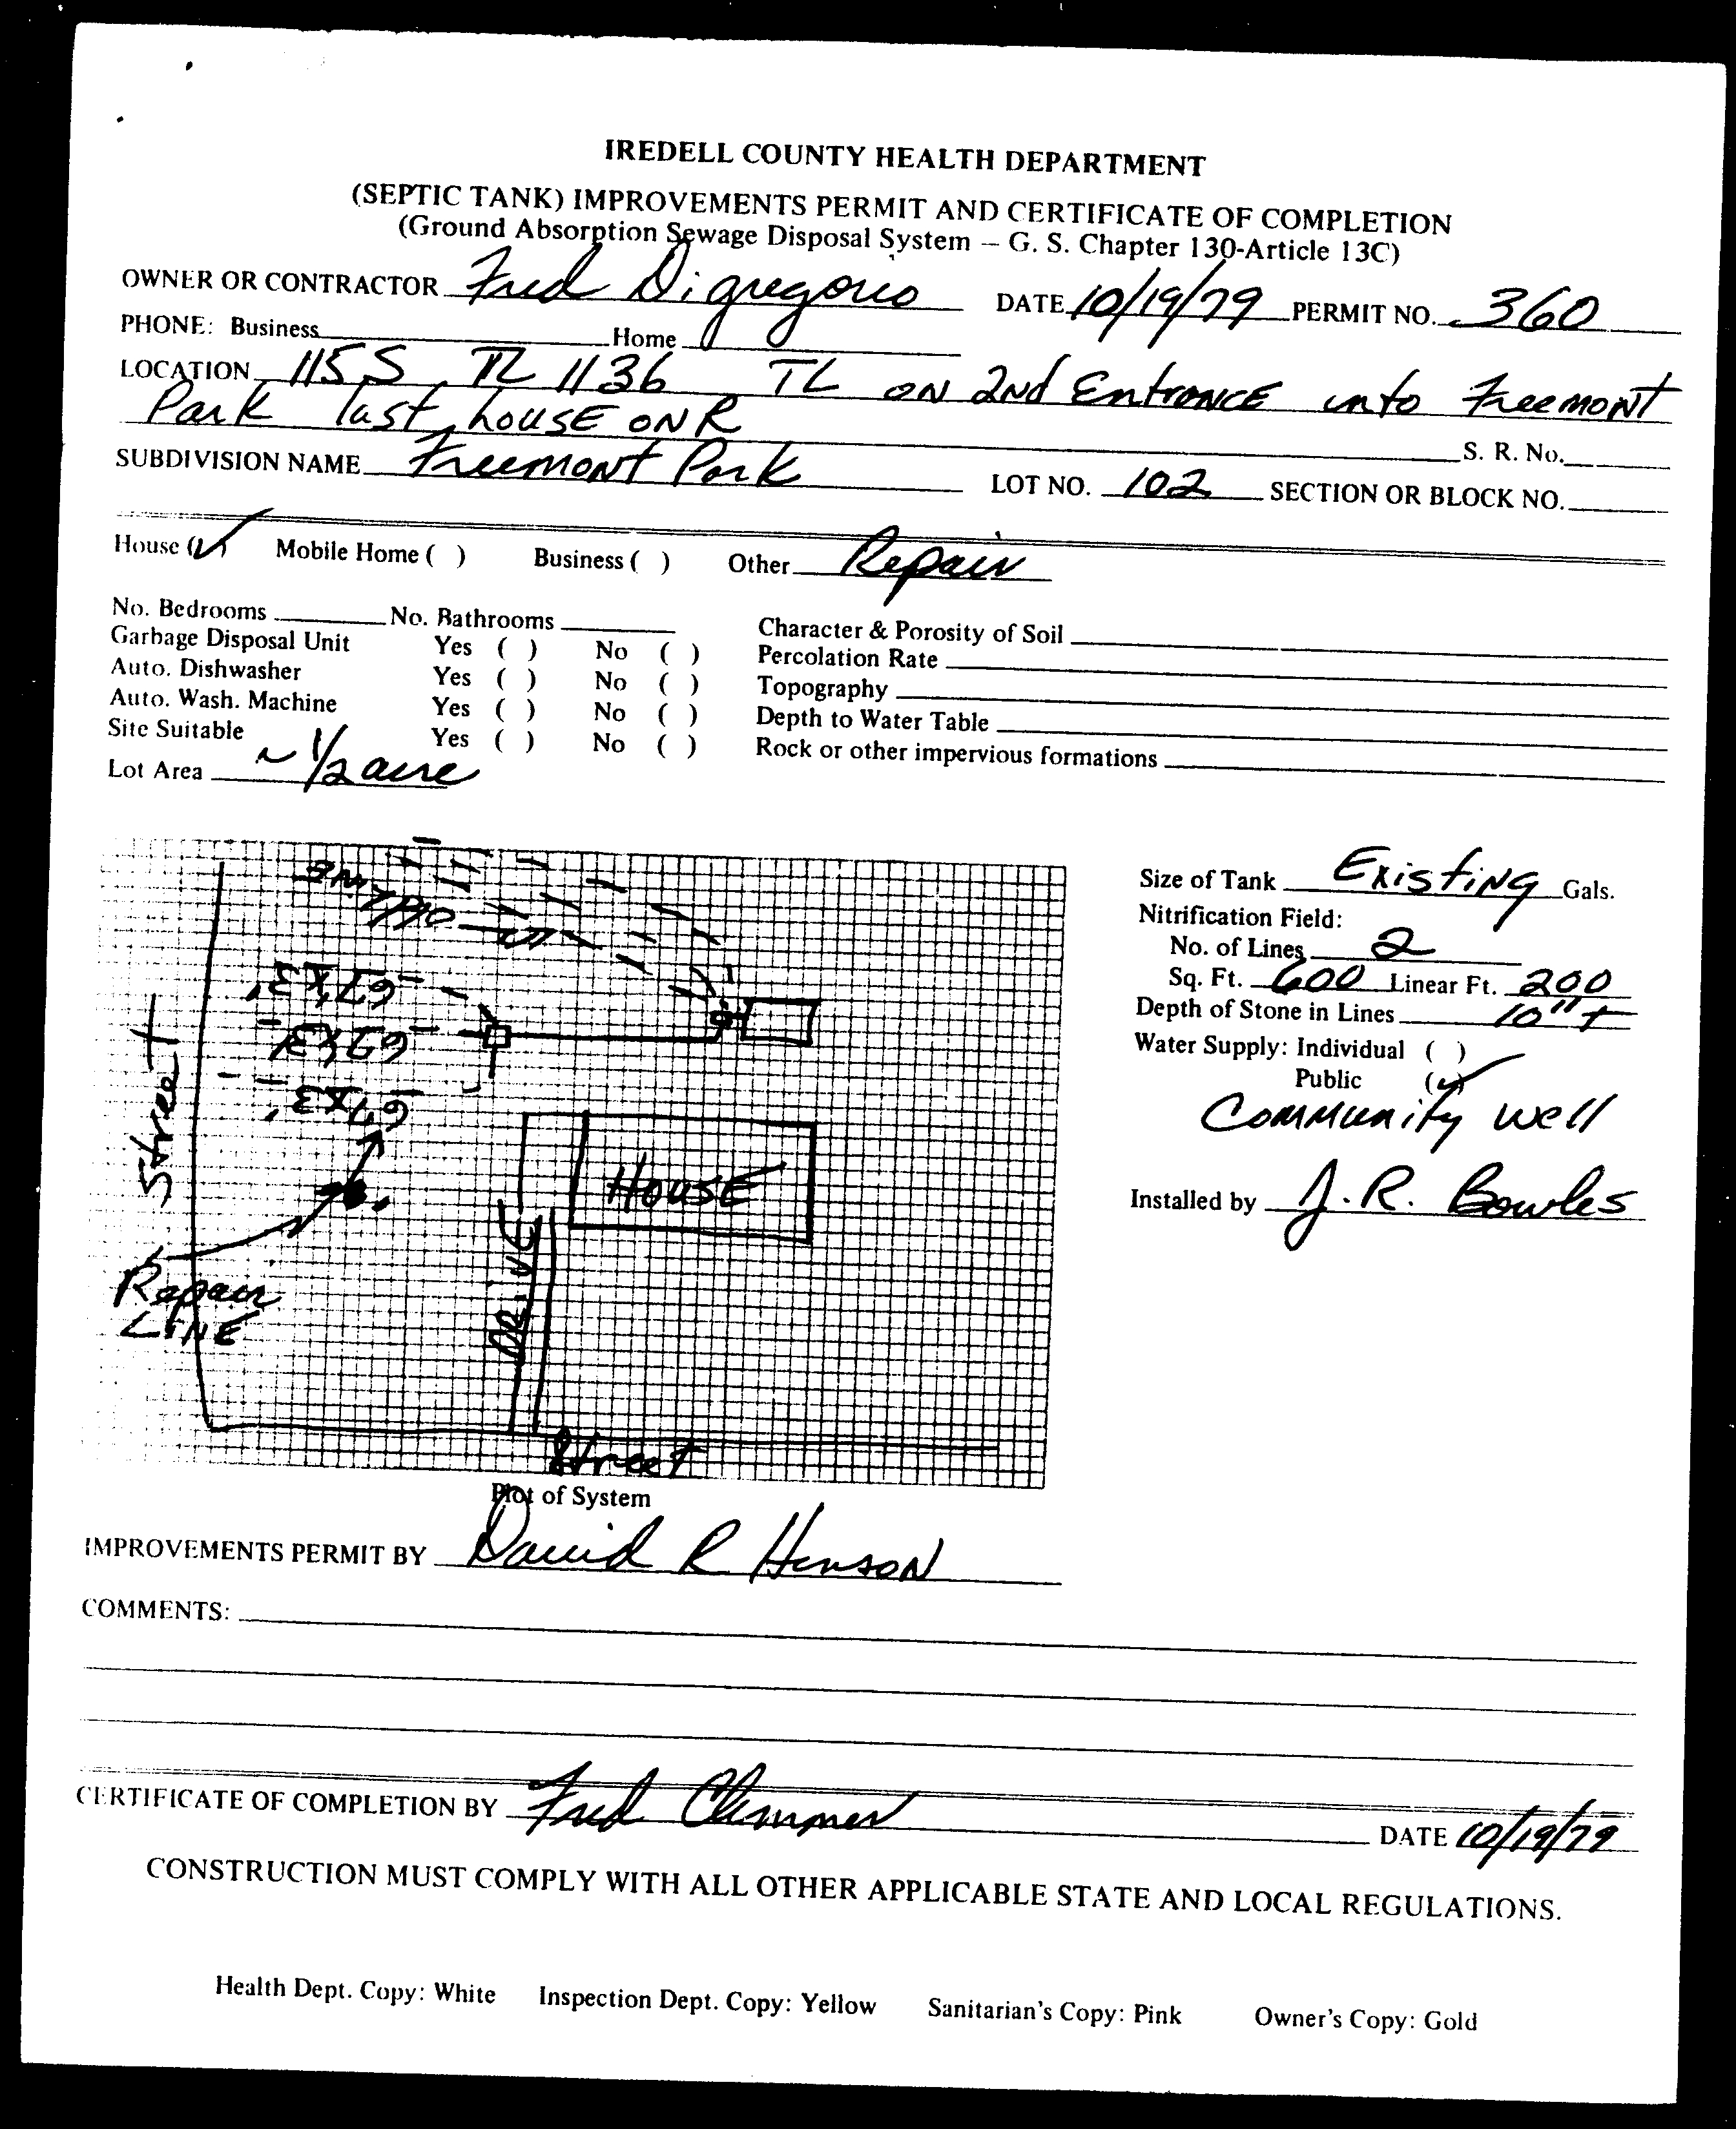 IREDELL COUNTY HEALTH DEPARTMENT
(SEPTIC TANK) IMPROVEMENTS PERMIT AND CERTIFICATE OF COMPLETION
(Ground Absorption Sewage Disposal System – G. S. Chapter 130-Article 13C)
OWNER OR CONTRACTOR Fred Digregorio DATE 10/19/79 PERMIT NO. 360
PHONE: Business Home
LOCATION 115 S TL 1136 TL ON 2nd Entrance into Freemont
Park last house on R
S. R. No.
SUBDIVISION NAME Freemont Park LOT NO. 102 SECTION OR BLOCK NO.
House (✓) Mobile Home ( ) Business ( ) Other Repair
No. Bedrooms No. Bathrooms
Garbage Disposal Unit Yes ( ) No ( )
Auto. Dishwasher Yes ( ) No ( )
Auto. Wash. Machine Yes ( ) No ( )
Site Suitable Yes ( ) No ( )
Lot Area ~ 1/2 acre
Character & Porosity of Soil
Percolation Rate
Topography
Depth to Water Table
Rock or other impervious formations
old line
67'x3'
67'x3'
67'x3'
Street
House
Drive
Repair
Line
Street
Plot of System
Size of Tank Existing Gals.
Nitrification Field:
No. of Lines 2
Sq. Ft. 600 Linear Ft. 200
Depth of Stone in Lines 10"+
Water Supply: Individual ( )
Public (✓)
Community well
Installed by J. R. Bowles
IMPROVEMENTS PERMIT BY David R Henson
COMMENTS:
CERTIFICATE OF COMPLETION BY Fred Clemmer
DATE 10/19/79
CONSTRUCTION MUST COMPLY WITH ALL OTHER APPLICABLE STATE AND LOCAL REGULATIONS.
Health Dept. Copy: White Inspection Dept. Copy: Yellow Sanitarian's Copy: Pink Owner's Copy: Gold